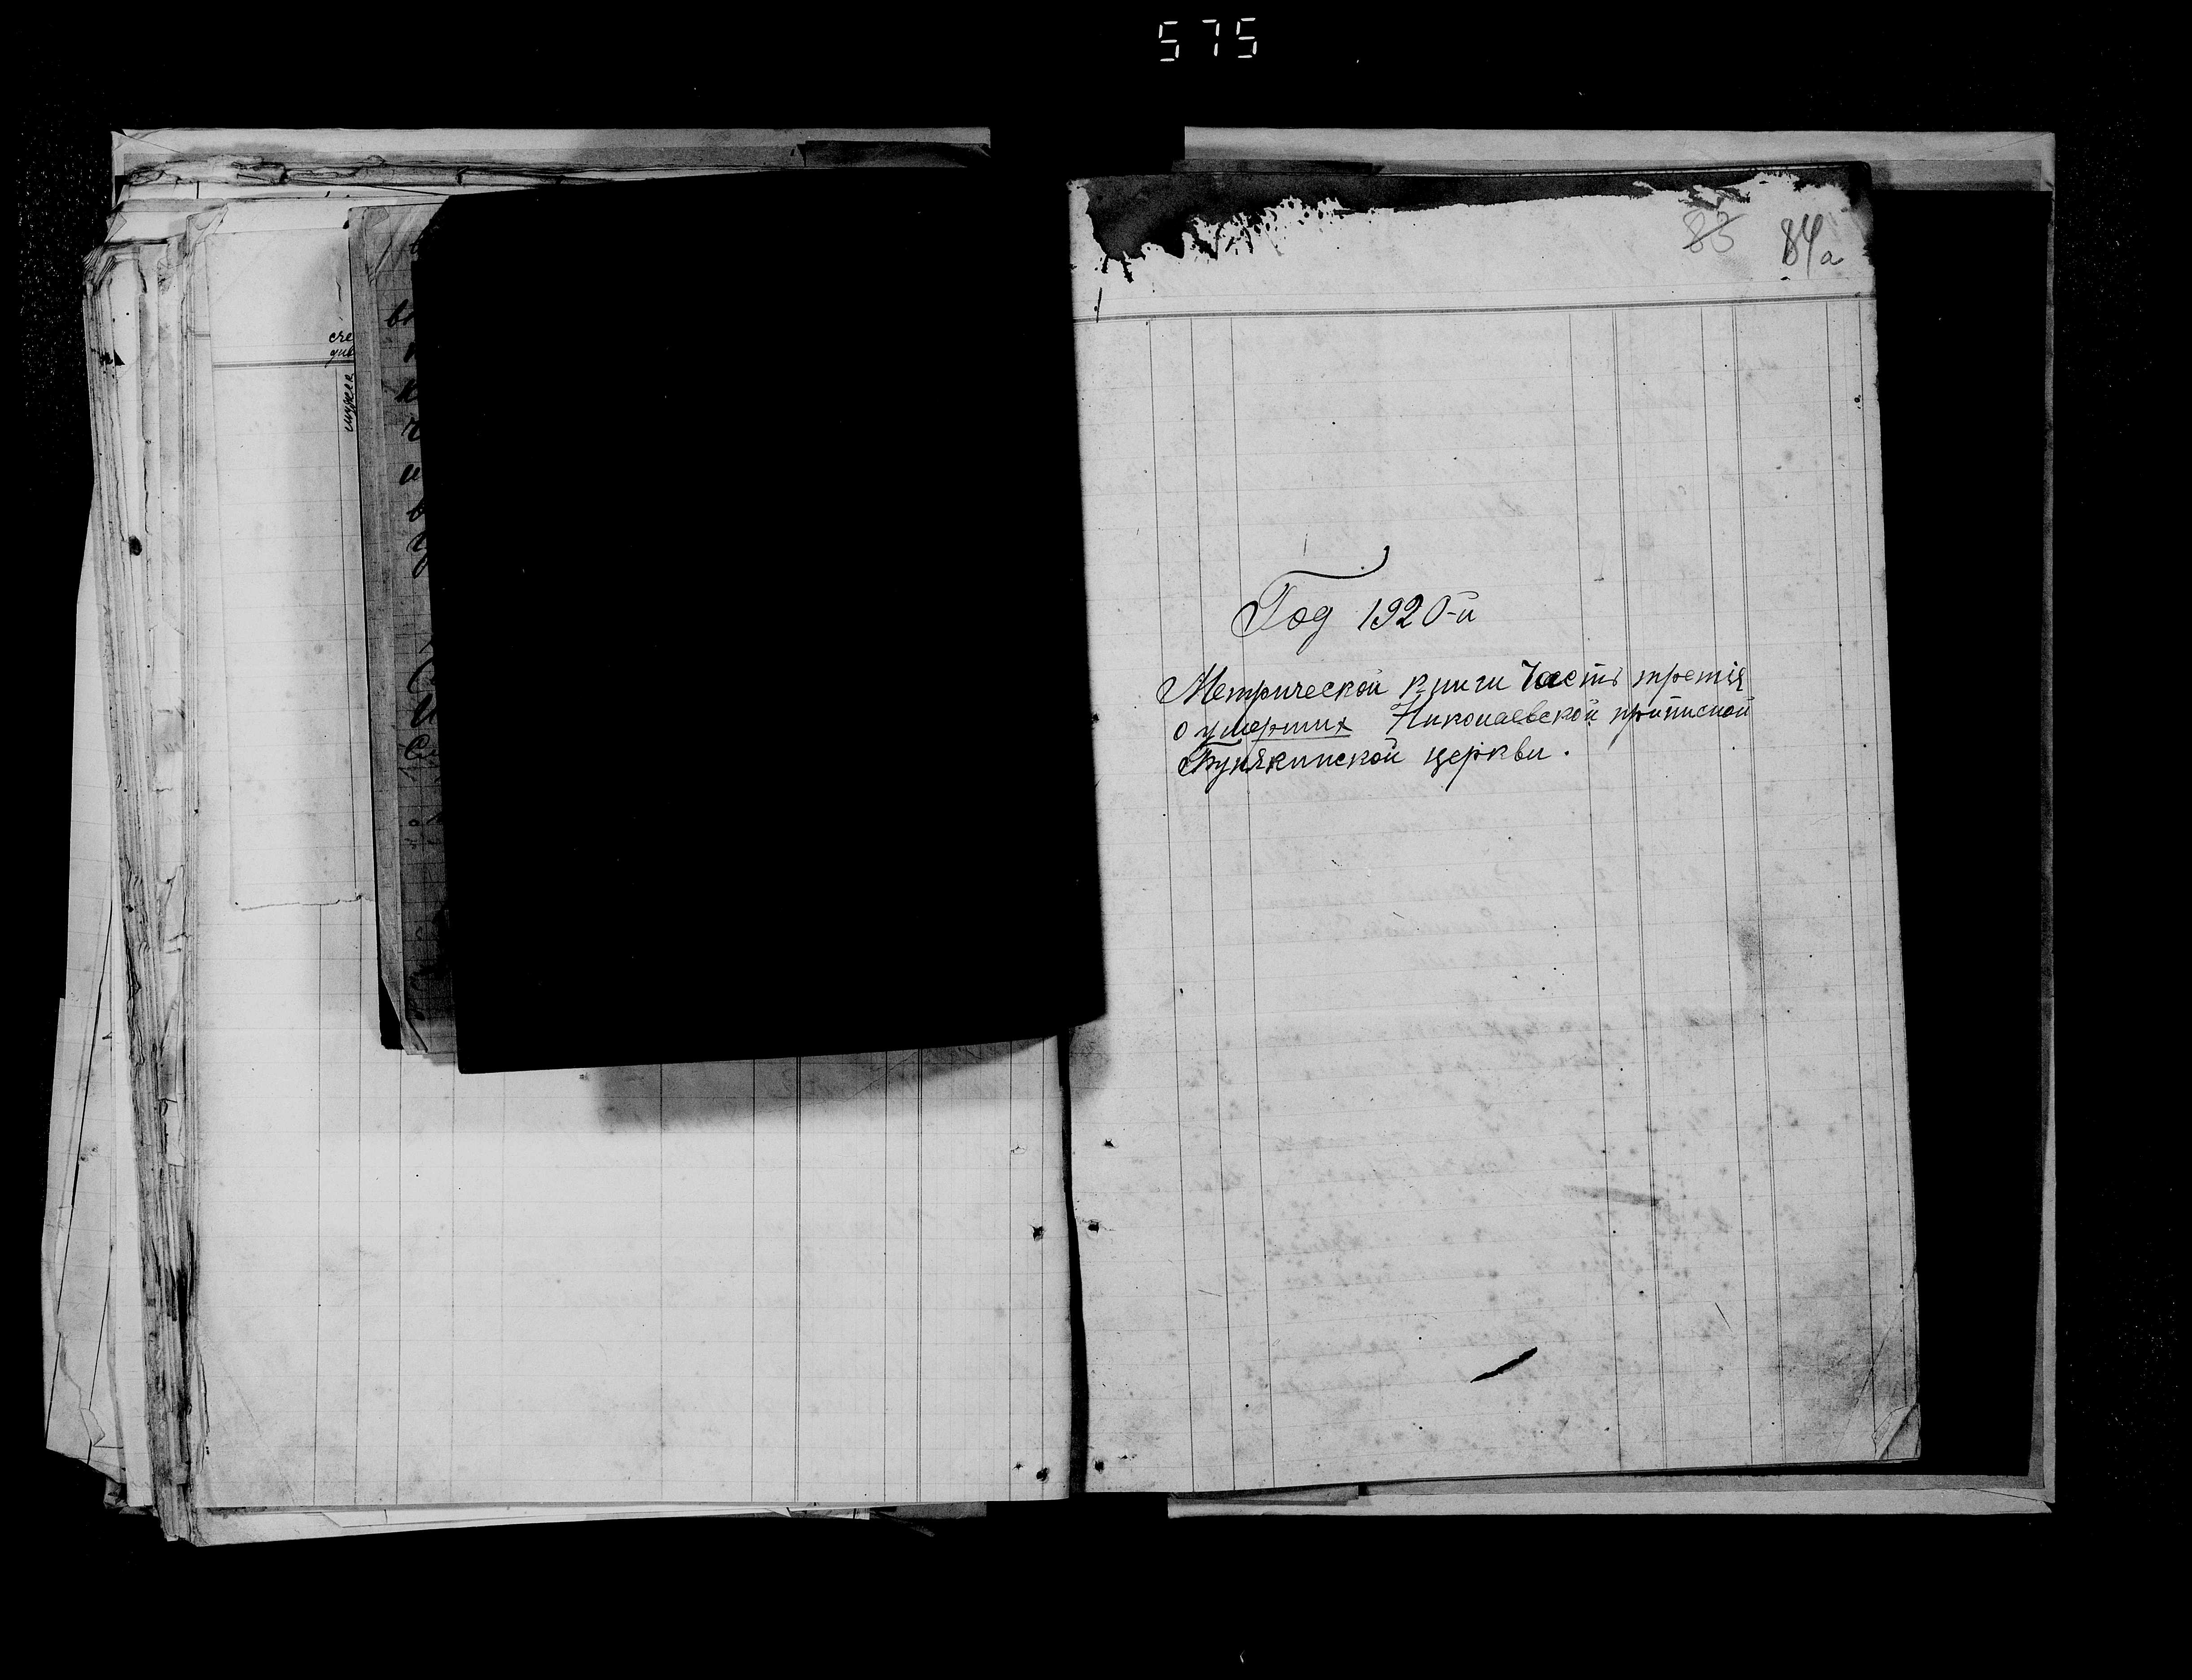 575
83 84а
Год 1920-й
Метрической книги часть третiя
о умерших Николаевской приписной
церкви.